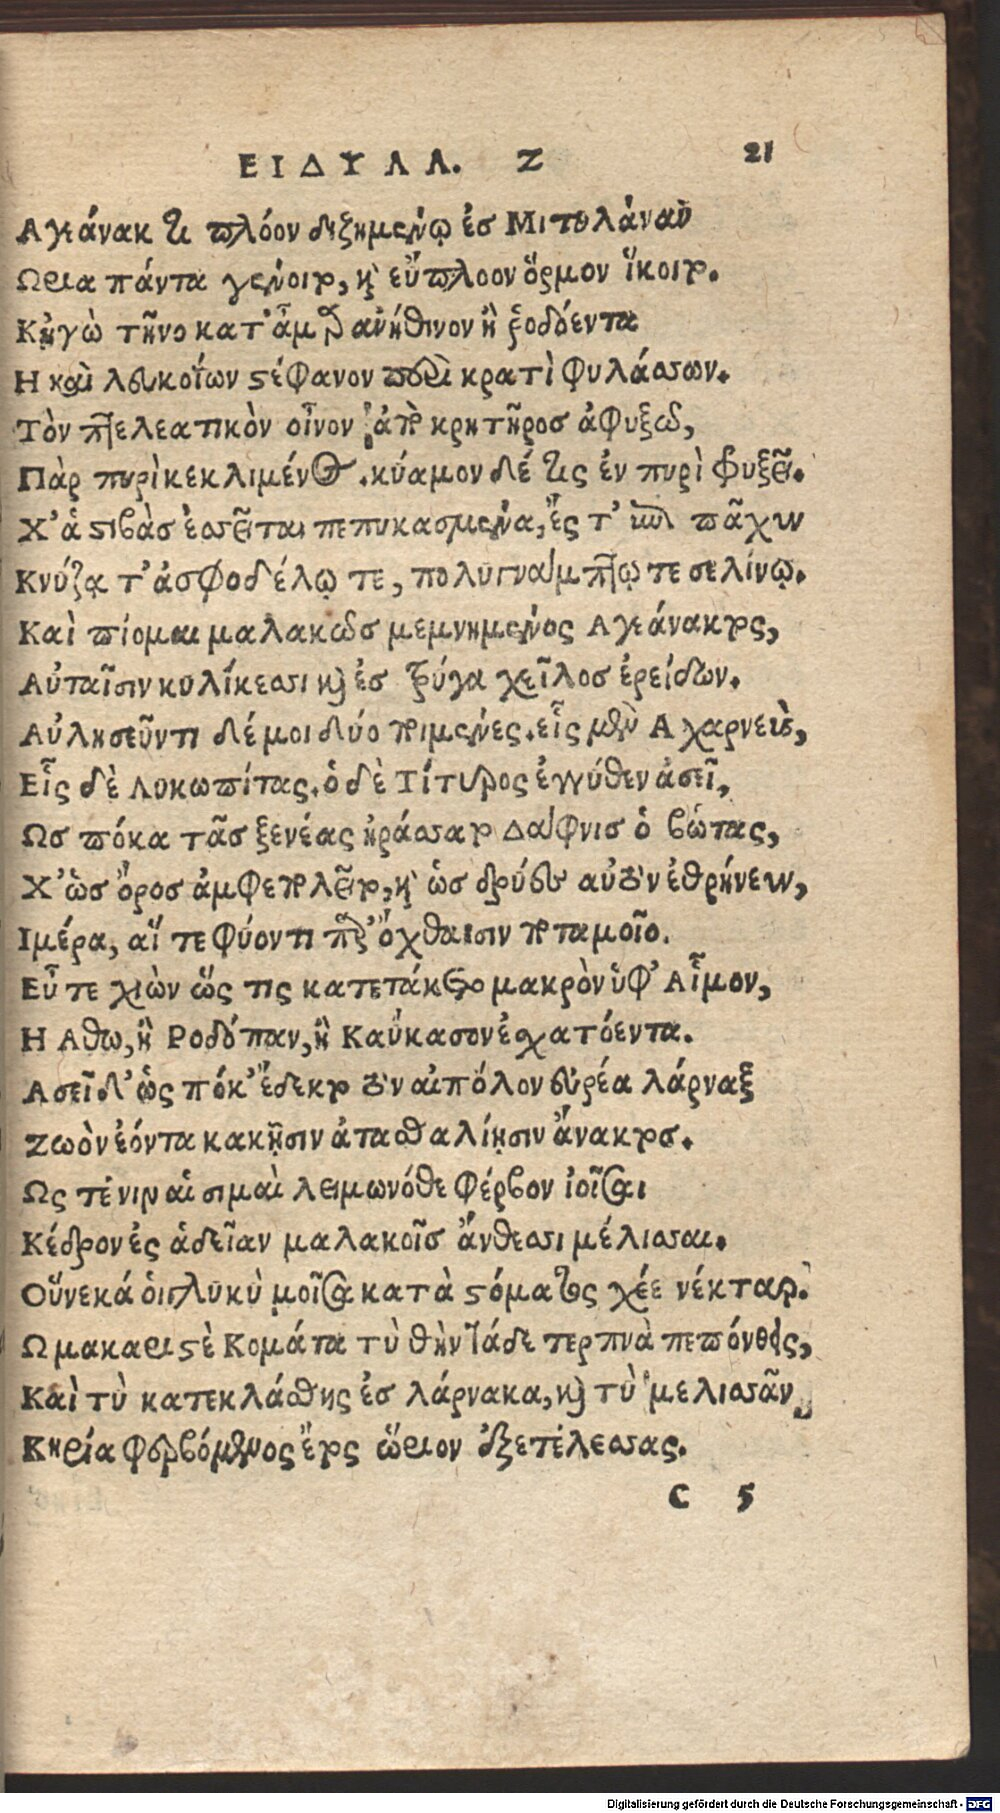 ΕΙΔΥΛΛ. Ζ 21
Αγεάνακτι πλόον διζημένῳ ἐσ Μιτυλάναν
Ωρια πάντα γένοιτο, καὶ εὔπλοον ὅρμον ἵκοιτο.
Κἠγὼ τῆνο κατ' ἆμαρ ἀνήθινον ἢ ῥοδόεντα
Η καὶ λευκοΐων στέφανον περὶ κρατὶ φυλάσσων.
Τὸν πτελεατικὸν οἶνον ἀπὸ κρητῆροσ ἀφυξῶ,
Πὰρ πυρὶ κεκλιμένος. κύαμον δέ τις ἐν πυρὶ φυξεῖ.
Χ' ἁ στιβὰσ ἐσσεῖται πεπυκασμένα, ἔς τ' ἐπὶ πᾶχυν
Κνύζᾳ τ' ἀσφοδέλῳ τε, πολυγνάμπτῳ τε σελίνῳ.
Καὶ πίομαι μαλακῶσ μεμνημένος Αγεάνακτος,
Αὐταῖσιν κυλίκεσσι καὶ ἐσ τρύγα χεῖλοσ ἐρείδων.
Αὐλησεῦντι δέ μοι δύο ποιμένες. εἷς μὲν Αχαρνεὺς,
Εἷς δὲ Λυκωπίτας. ὁ δὲ Τίτυρος ἐγγύθεν ἀσεῖ,
Ωσ πόκα τᾶσ ξενέας ἠράσσατο Δάφνισ ὁ βώτας,
Χ' ὡσ ὄροσ ἀμφεπολεῖτο, καὶ ὡσ δρύες αὐτὸν ἐθρήνευν,
Ιμέρα, αἵ τε φύοντι παρ' ὄχθαισιν ποταμοῖο.
Εὖτε χιὼν ὥς τις κατετάκετο μακρὸν ὑφ' Αἷμον,
Η Αθω, ἢ Ροδόπαν, ἢ Καύκασον ἐσχατόεντα.
Ασεῖ δ' ὡς πόκ' ἔδεκτο τὸν αἰπόλον εὐρέα λάρναξ
Ζωὸν ἐόντα κακῇσιν ἀτασθαλίῃσιν ἄνακτοσ.
Ως τέ νιν αἱ σιμαὶ λειμωνόθε φέρβον ἰοῖσαι
Κέδρον ἐς ἁδεῖαν μαλακοῖσ ἄνθεσσι μέλισσαι.
Οὕνεκά οἱ γλυκὺ μοῖσα κατὰ στόματος χέε νέκταρ.
Ω μακαριστὲ Κομάτα τὺ θὴν τάδε τερπνὰ πεπόνθεις,
Καὶ τὺ κατεκλάσθης ἐσ λάρνακα, καὶ τὺ μελισσᾶν
Κηρία φερβόμενος ἔτος ὥριον ἐξετέλεσσας.
C 5
Digitalisierung gefördert durch die Deutsche Forschungsgemeinschaft - DFG